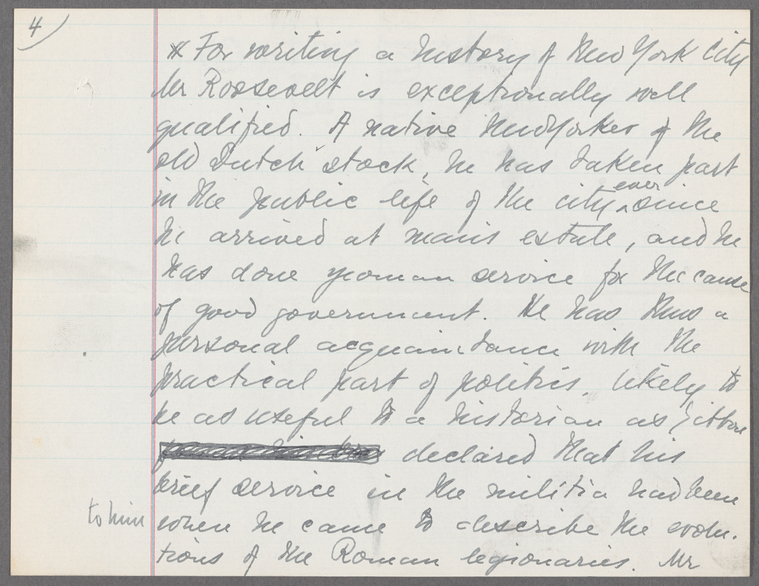 4
* For writing a history of New York City
Mr Roosevelt is exceptionally well
qualified. A native New Yorker of the
old Dutch stock, he has taken part
in the public life of the city ever since
he arrived at man's estate, and he
has done yeoman service for the cause
of good government. He has thus a
personal acquaintance with the
practical part of politics, likely to
be as useful to a historian as Gibbon
declared that his
brief service in the militia had been
to him when he came to describe the evolu-
tions of the Roman legionaries. Mr